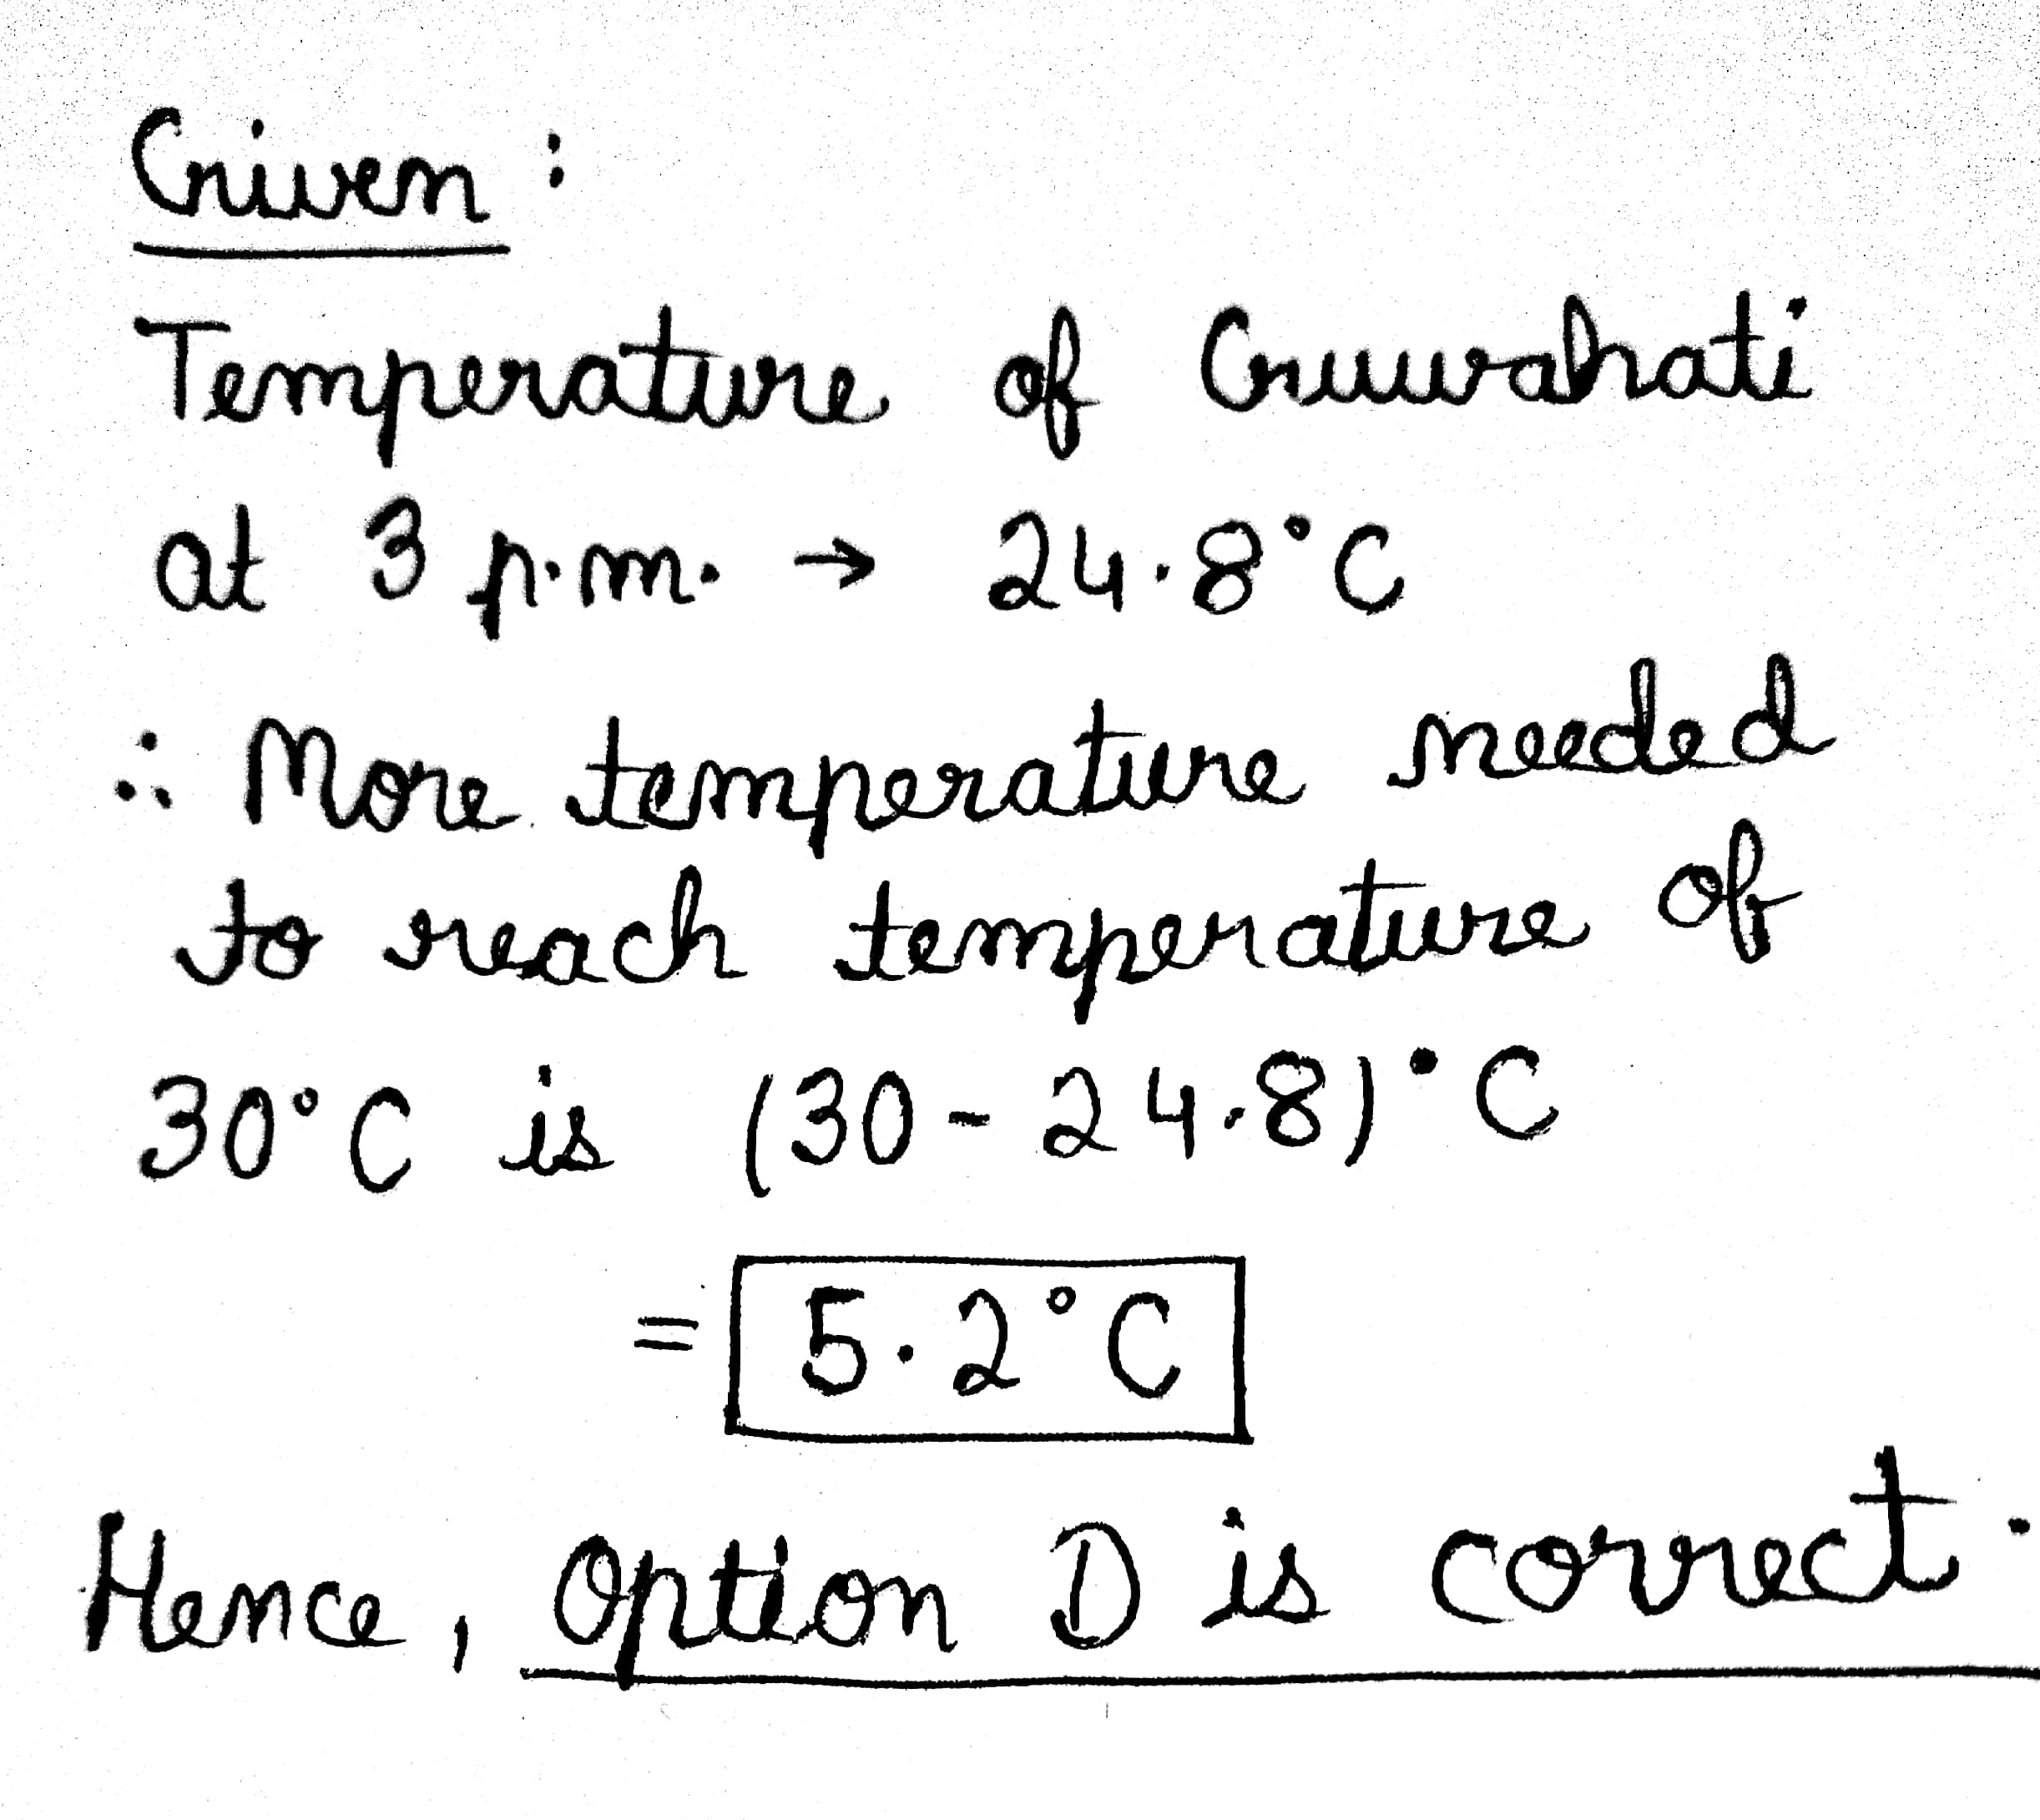 Given :
Temperature of Guwahati
at 3 p.m. → 24.8°C
∴ More temperature needed
to reach temperature of
30°C is (30 - 24.8)°C
= 5.2°C
Hence, Option D is correct.